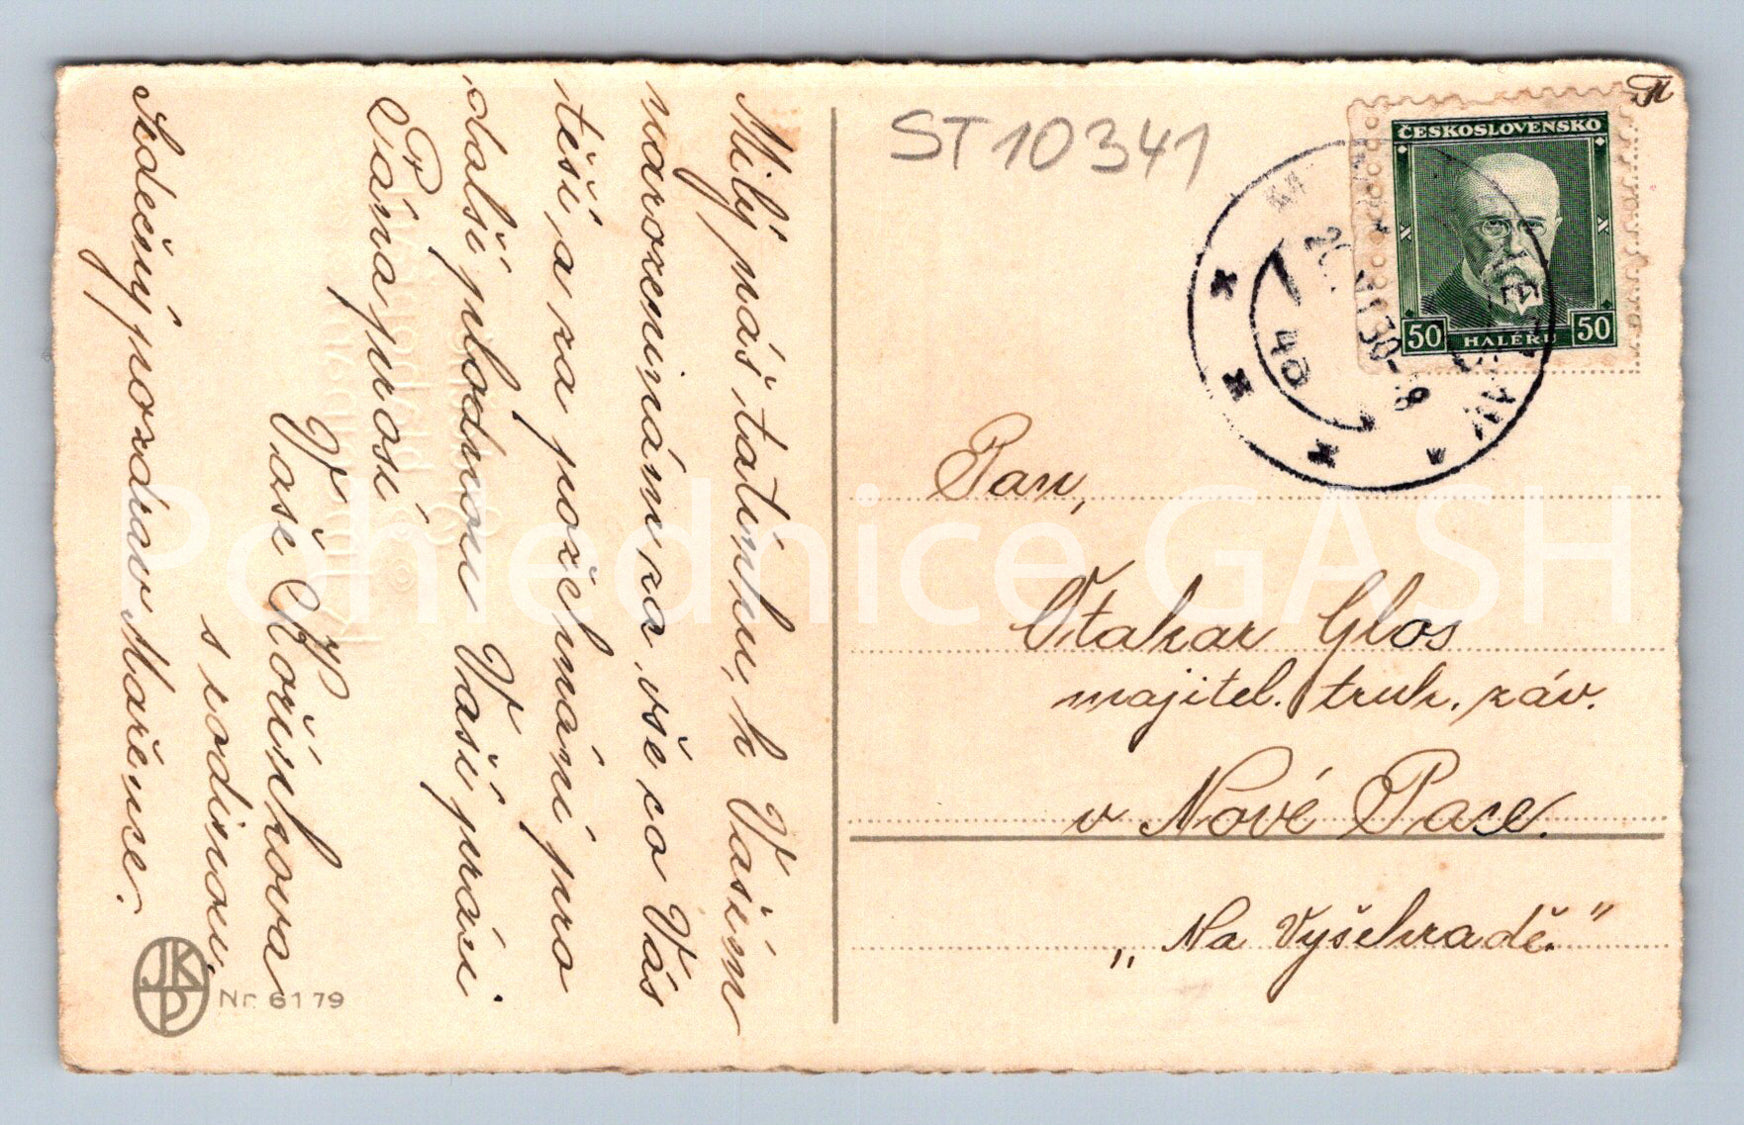 Milý náš tatínku, k Vašim
narozeninám za vše co Vás
těší a za požehnání pro
další plodnou Vaši práci
Pána prosí
Vaše Kořínkova
s rodinou.
Srdečný pozdrav Mařence.
JKP
Nr. 6179
ST 10341
ČESKOSLOVENSKO
50 HALÉŘŮ 50
Pan,
Otakar Glos
majitel. truh. záv.
v Nové Pace.
„Na Vyšehradě."
Pohlednice GASH